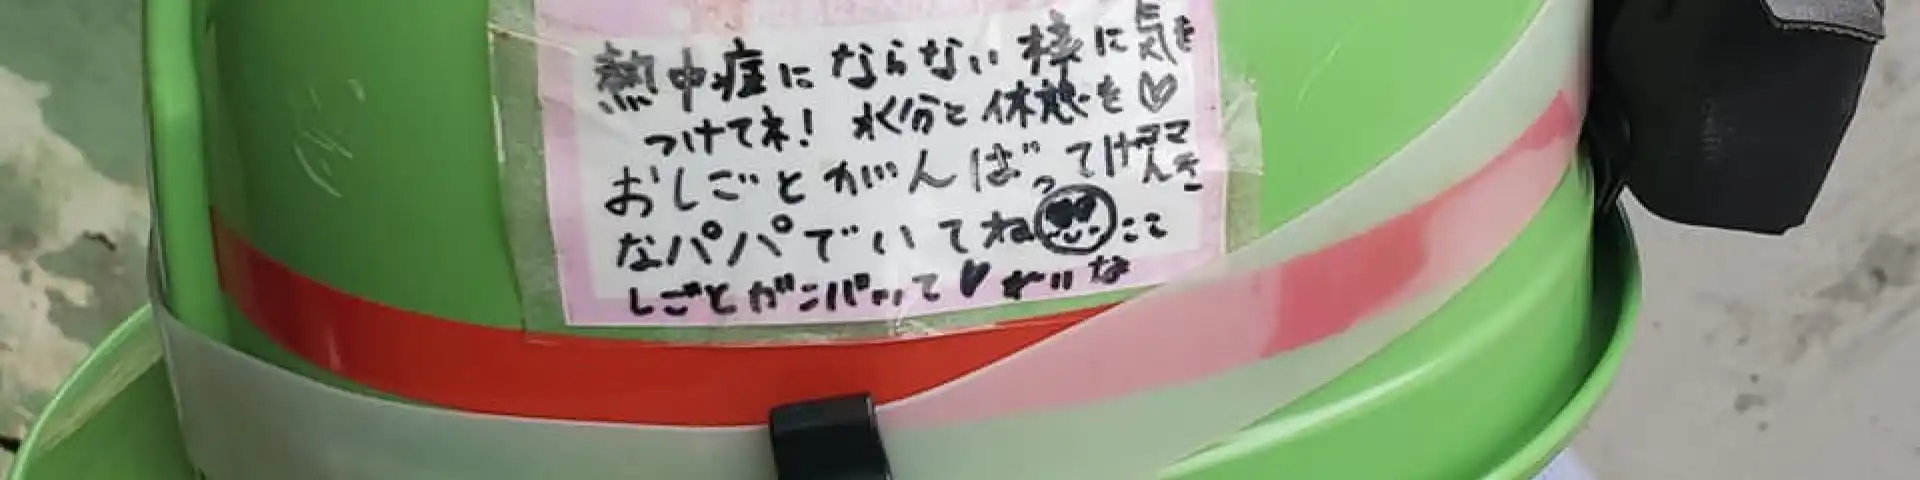 熱中症にならない様に気を
つけてネ！ 水分と休憩を♡
ママ
おしごとがんばってげんき
なパパでいてね
しごとガンバッて♥